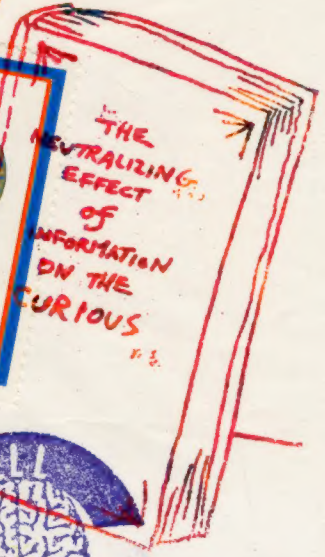 THE
NEUTRALIZING
EFFECT
of
INFORMATION
ON THE
CURIOUS
LL